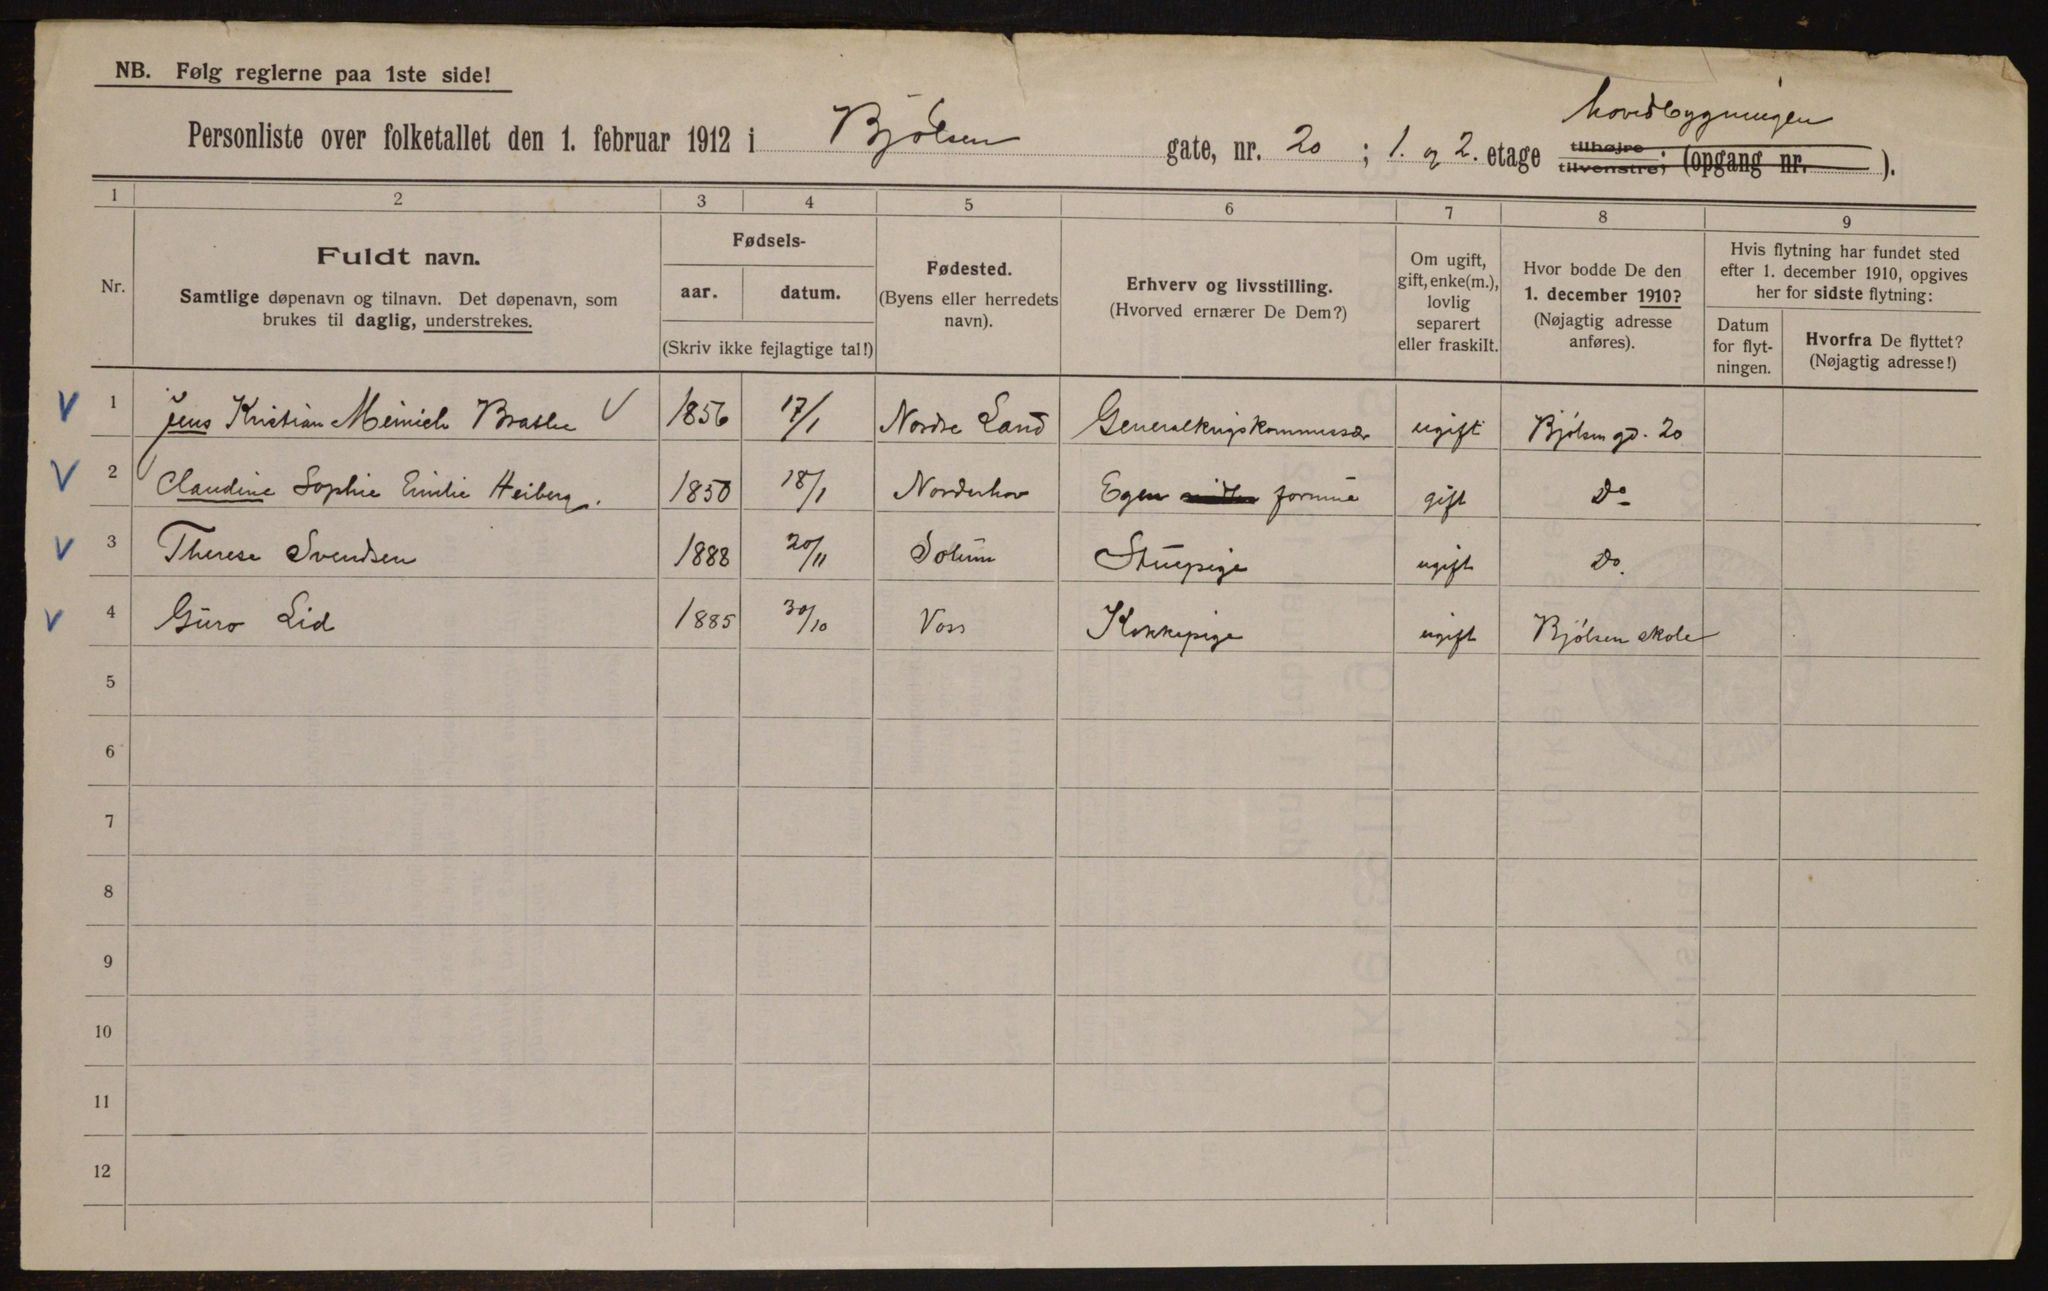 NB. Følg reglerne paa 1ste side!
hovedbygningen
Personliste over folketallet den 1. februar 1912 i Bjølsen gate, nr. 20 ; 1. og 2. etage tilhøjre tilvenstre; (opgang nr. ).
1 2 3 4 5 6 7 8 9
Nr.
Fuldt navn.
Samtlige døpenavn og tilnavn. Det døpenavn, som
brukes til daglig, understrekes.
Fødsels-
aar. datum.
(Skriv ikke fejlagtige tal!)
Fødested.
(Byens eller herredets
navn).
Erhverv og livsstilling.
(Hvorved ernærer De Dem?)
Om ugift,
gift, enke(m.),
lovlig
separert
eller fraskilt.
Hvor bodde De den
1. december 1910?
(Nøjagtig adresse
anføres).
Hvis flytning har fundet sted
efter 1. december 1910, opgives
her for sidste flytning:
Datum
for flyt-
ningen.
Hvorfra De flyttet?
(Nøjagtig adresse!)
V 1 Jens Kristian Meinich Bratlie V 1856 17/1 Nordre Land Generalkrigskommissær ugift Bjølsen gd. 20
V 2 Claudine Sophie Emilie Heiberg. 1850 18/1 Norderhov Egen formue gift Do
V 3 Therese Svendsen 1888 20/11 Solum Stuepige ugift Do.
V 4 Guro Lid 1885 30/10 Voss Kokkepige ugift Bjølsen skole
5
6
7
8
9
10
11
12